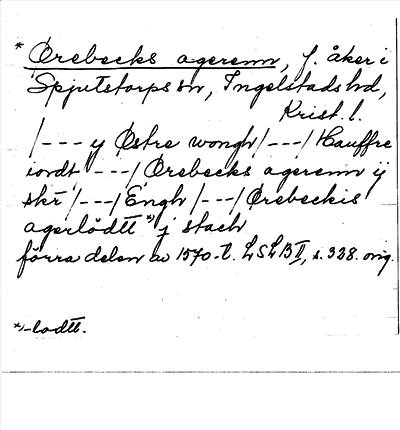 * Örebecks agerenn, f. åker i
Spjutstorps sn, Ingelstads hd,
Krist. l.
/--- y Østre wongh /---/ Hauffre
iordt ---/ Örebecks agerenn ij
skr̄ /---/ Engh /---/ Ørebeckis
agerlödtt *) j stach
förra delen av 1570-t. LSLB II, s. 328. orig.
*)-lodtt.